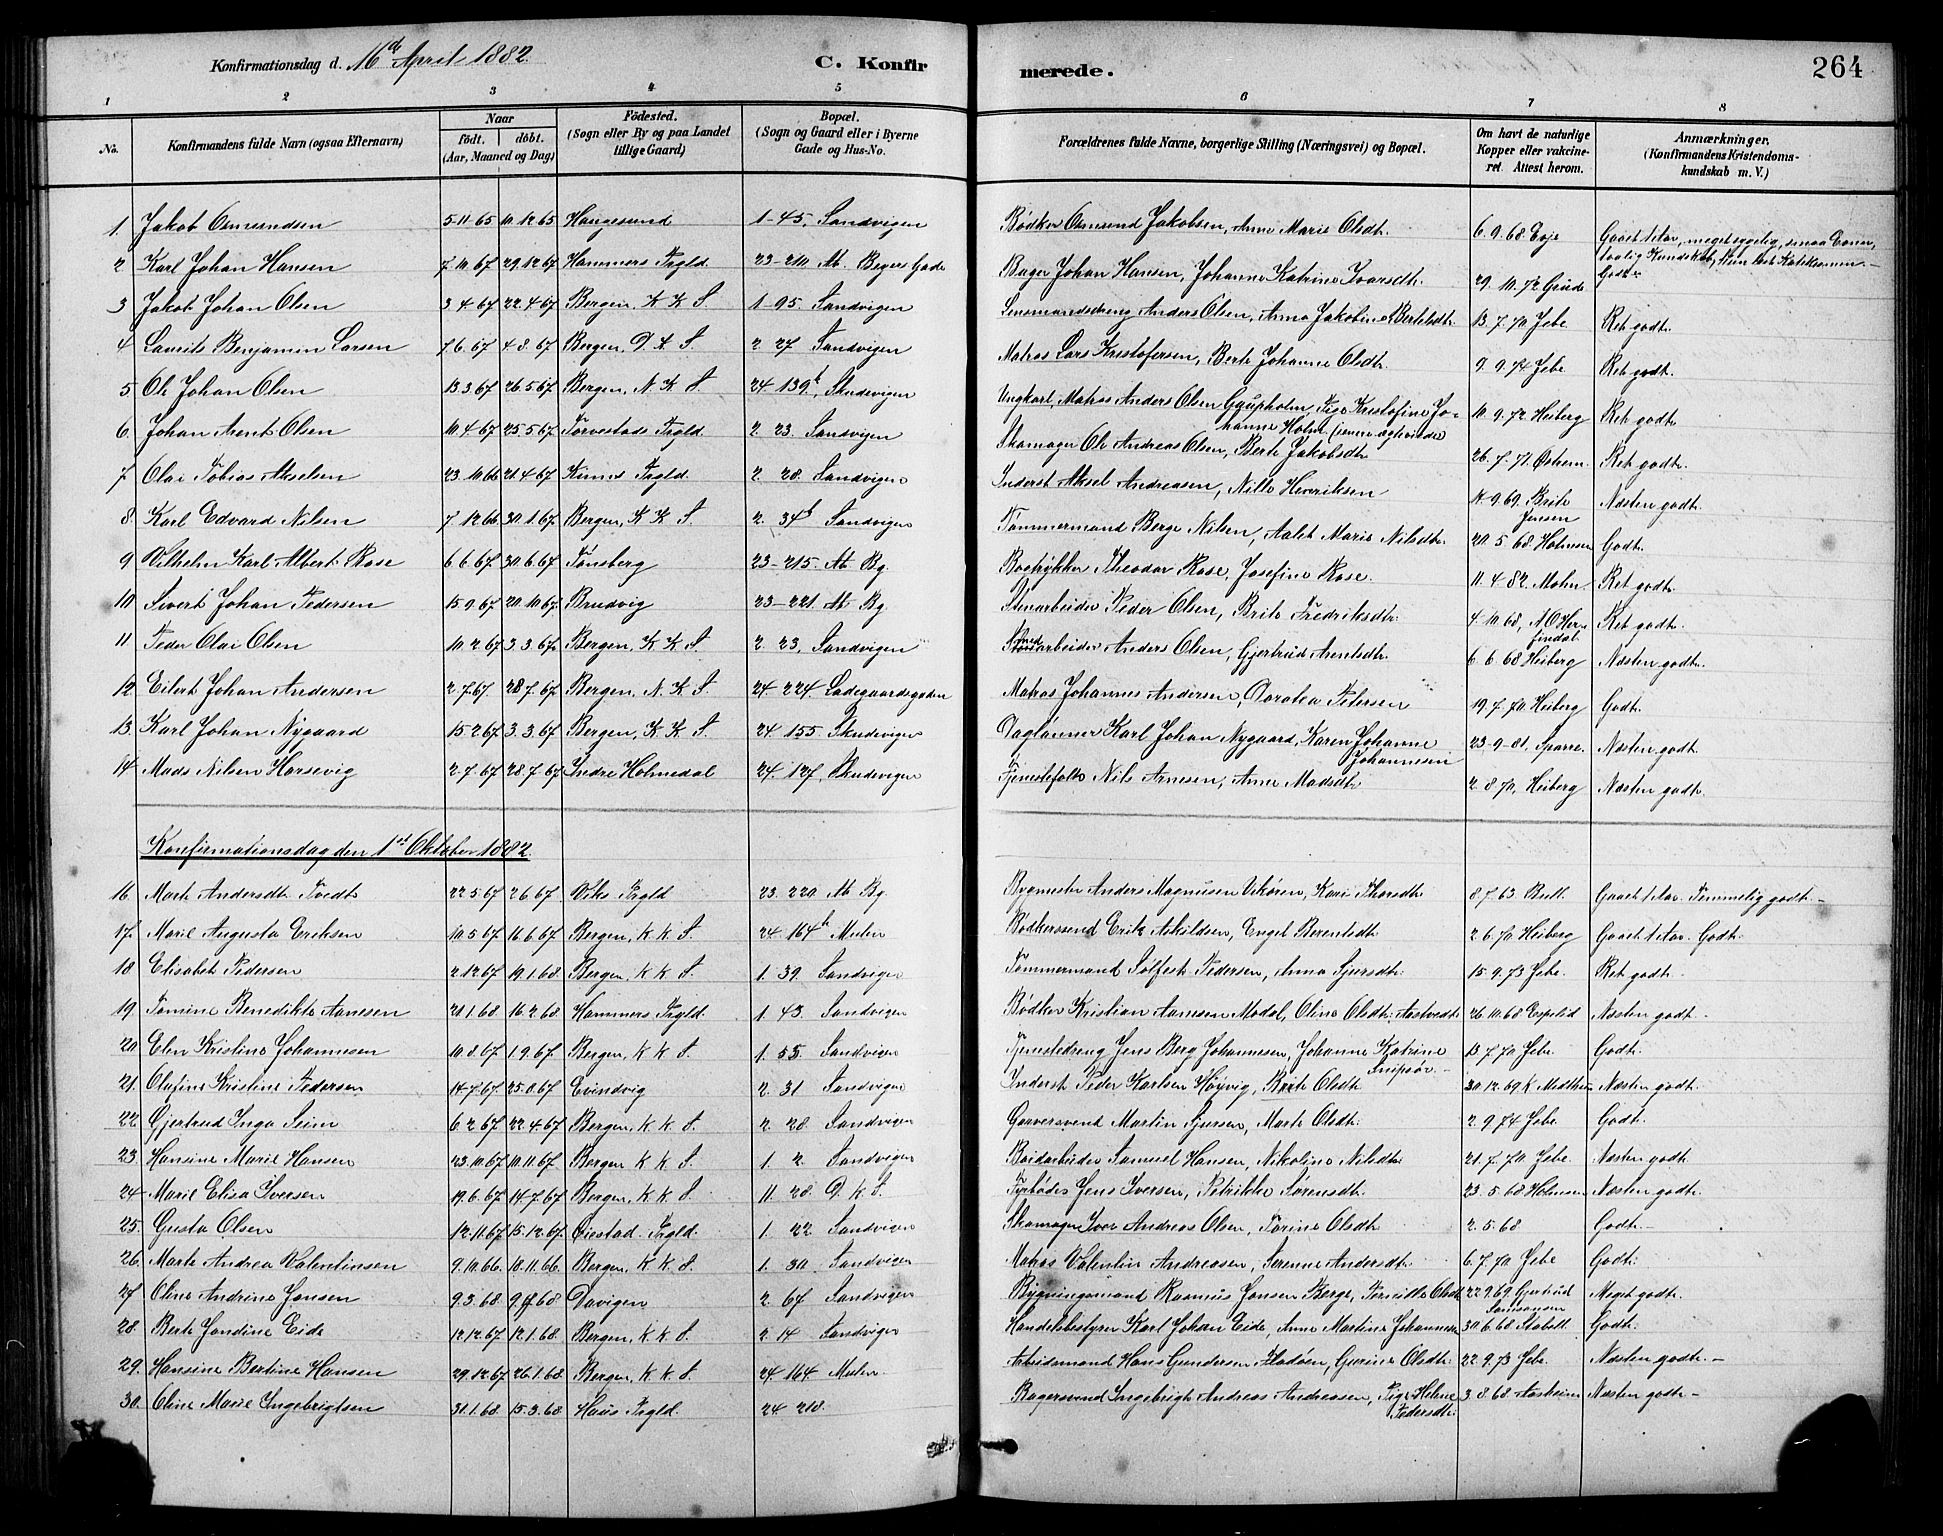 Konfirmationsdag d. 16de April 1882. C. Konfirmerede. 264
1 2 3 4 5 6 7 8
No. Konfirmandens fulde Navn (ogsaa Efternavn) Naar født. døbt. (Aar, Maaned og Dag) Födested. (Sogn eller By og paa Landet tillige Gaard) Bopæl. (Sogn og Gaard eller i Byerne Gade og Hus-No. Forældrenes fulde Navne, borgerlige Stilling (Næringsvei) og Bopæl. Om havt de naturlige Kopper eller vakcineret. Attest herom. Anmærkninger. (Konfirmandens Kristendomskundskab m. V.)
1 Jakob Osmundsen 5.11.65 10.12.65 Haugesund 1-45, Sandvigen Bødker Osmund Jakobsen, Anne Marie Olsdtr. 6.9.68 Eeje Gaaet 1 Aar, meget sygelig, smaa Evner,
2 Karl Johan Hansen 7.10.67 29.12.67 Hammers Prgld. 23-210 Ab. Beyers Gade Bager Johan Hansen, Johanne Katrine Ivarsdtr. 29.10.72 Grude Godt.
3 Jakob Johan Olsen 3.4.67 22.4.67 Bergen, K K S. 1-95. Sandvigen Lensmandsdreng Anders Olsen, Anna Jakobine Bertelsdtr. 13.7.70 Jebe Ret godt.
4 Laurits Benjamin Larsen 7.6.67 4.8.67 Bergen, D. K S. 2 27 Sandvigen Matros Lars Kristofersen, Berte Johanne Olsdtr. 9.9.74 Jebe Ret godt.
5 Ole Johan Olsen 13.3.67 26.5.67 Bergen, N. K S. 24 139b, Skudevigen Ungkarl, Matros Anders Olsen Gjupholm, Pige Kristofine Johanne Holm (senere ægteviede) 10.9.72 Heiberg Ret godt
6. Johan Arent Olsen 10.4.67 25.5.67 Torvestads Prgld. 2 23. Sandvigen Skomager Ole Andreas Olsen, Berte Jakobsdtr. 26.7.71. Østrem Ret godt.
7 Olai Tobias Akselsen 23.10.66 21.4.67 Kinns Prgld. 2 28. Sandvigen Inderst Aksel Andreasen, Nille Henriksen 11.9.69. Brite Jensen Næsten godt.
8 Karl Edvard Nilsen 7.12.66 30.1.67 Bergen, K K S. 2. 34b Sandvigen Tømmermand Berge Nilsen, Aalet Marie Nilsdtr. 20.5.68 Holmsen Godt.
9 Vilhelm Karl Albert Rose 6.6.67 30.6.67 Tønsberg 23-215. Ab Bg. Bogtrykker Theodor Rose, Josefine Rose. 11.4.82 Mohn. Ret godt.
10 Sivert Johan Pedersen 15.9.67 20.10.67 Bruvig 23-221 Ab Bg. Stenarbeider Peder Olsen, Brite Fredriksdtr. 4.10.68, N O Herfindal Ret godt.
11 Peder Olai Olsen 10.2.67 3.3.67 Bergen, K K S. 2 23, Sandvigen arbeider Anders Olsen, Gjertrud Arentsdtr. 6.6.68 Heiberg Næsten godt.
12 Eilert Johan Andersen 2.7.67. 28.7.67 Bergen, N. K S. 24 224 Ladegaardsgaden Matros Johannes Andersen, Dorotea Petersen 19.7.70 Heiberg Godt.
13. Karl Johan Nygaard 15.2.67 3.3.67 Bergen, K K S. 24 155 Skudevigen Dagløbner Karl Johan Nygaard, Karen Johanne Johannesen 23-9-81. Sparre. Næsten godt.
14 Mads Nilsen Horsevig 2.7.67 28.7.67 Indre Holmedal 24. 127, Skudevigen Tjenestefolk Nils Arnesen, Anne Madsdtr. 2.8.70. Heiberg Næsten godt.
Konfirmationsdag den 1ste Oktober 1882.
16. Marte Andersdtr. Tvedt 22.5.67 2.6.67 Viks Prgld 23. 220 Ab Bg. Bygmester Anders Magnusen Vikøren, Kari Thorsdtr. 8.7.63 Bull. Gaaet 1 Aar. Temmelig godt.
17. Marie Augusta Eriksen 10.5.67 16.6.67 Bergen, K K S. 24 164b Mulen Bødkersvend Erik Askildsen, Engel Berentsdtr 2.6.70 Heiberg Gaaet 1 Aar. Godt.
18 Elisabet Pedersen 2.12.67 19.1.68. Bergen, K K S. 1. 39. Sandvigen Tømmermand Sølfest Pedersen, Anna Sjursdtr. 15.9.73 Jebe. Ret godt.
19. Tomine Benedikte Aanesen 21.1.68 16.2.68 Hammers Prgld. 1. 43. Sandvigen Bødker Kristian Aanesen Modal, Oline Olsdtr. Aastvedt 26.10.68 Espelid Næsten godt.
20 Elen Kristine Johannesen 10.8.67 1.9.67. Bergen, K K S. 1. 55. Sandvigen Tjenestedreng Jens Berg Johannesen, Johanne Katrine Snipsør. 13.7.70 Jebe. Godt.
21. Olufine Kristine Pedersen 14.7.67. 25.8.67 Evindvig 2. 31 Sandvigen Inderst Peder Karlsen Høyvig, Brite Olsdtr 30.12.69 K Midthun Næsten godt.
22 Gjertrud Inga Seim 6.2.67 22.4.67 Bergen, K K S. 2. 28 Sandvigen Garversvend Martin Sjursen, Marte Olsdtr. 2.9.74 Jebe. Godt.
23. Hansine Marie Hansen 23.10.67 10.11.67 Bergen K K S. 1. 2. Sandvigen Boidarbeider Samuel Hansen, Nikoline Nilsdtr 21.7.70. Jebe. Næsten godt.
24 Marie Elisa Iversen 19.6.67 14.7.67 Bergen, K K S. 11. 28 D. K S. Fyrbøder Jens Iversen, Petrikke Sørensdtr. 23.5.68 Holmsen Næsten godt.
25. Gusta Olsen 12.11.67 15.12.67. Eiestad. Prgld. 1. 22 Sandvigen Skomager Iver Andreas Olsen, Torine Olsdtr 2.5.68 Godt.
26. Marte Andrea Valentinsen 9.10.66 18.11.66 Bergen, K K S. 1. 30. Sandvigen Matros Valentin Andreasen, Serenne Andersdtr. 6.7.70 Jebe Godt.
27 Oline Andrine Jansen 9.3.68. 9.4.68 Davigen 2. 67 Sandvigen Bygningsmand Rasmus Jansen Berge, Pernille Olsdtr 22.9.69 Gjertrud Meget godt.
28. Berte Jondine Eide 12.12.67 12.1.68. Bergen, K K S. 2. 14 Sandvigen Handelsbestyrer Karl Johan Eide, Anne Martine Johannesen 30.6.68 Stabell. Godt.
29. Hansine Bertine Hansen 29.12.67 26.1.68 Bergen, K K S. 24. 164. Mulen Arbeidsmand Hans Gundersen Fladøen, Gurine Olsdtr. 22.9.73 Jebe. Næsten godt.
30. Oline Marie Ingebrigtsen 31.1.68. 15.3.68. Haus Prgld. 24 218. Bagersvend Ingebrigt Andreas Andreasen, Pige Helene Pedersdtr. 3.8.68 Aasheim Næsten godt.